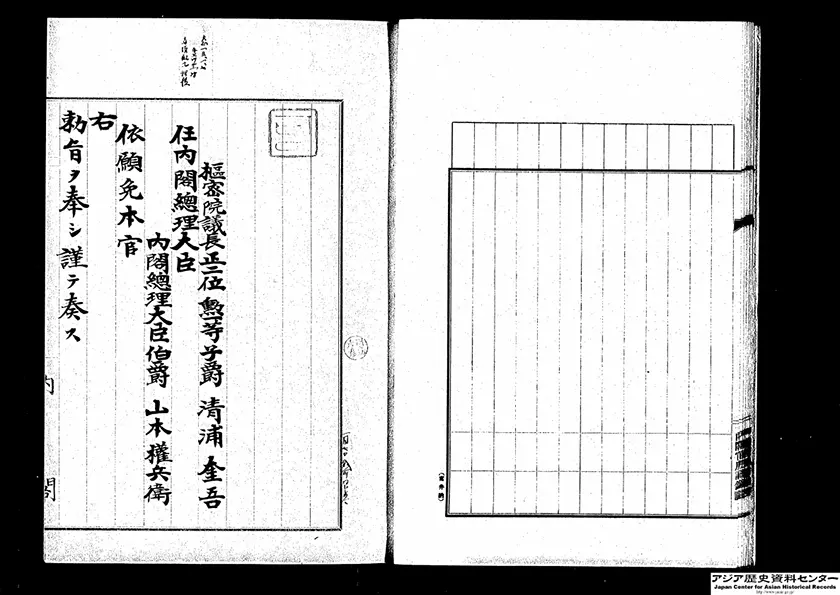 樞密院議長正二位勲一等子爵 清浦奎吾
任内閣總理大臣
内閣總理大臣伯爵 山本權兵衛
依願免本官
右
勅旨ヲ奉シ謹テ奏ス
内閣
アジア歴史資料センター
Japan Center for Asian Historical Records
http://www.jacar.go.jp/